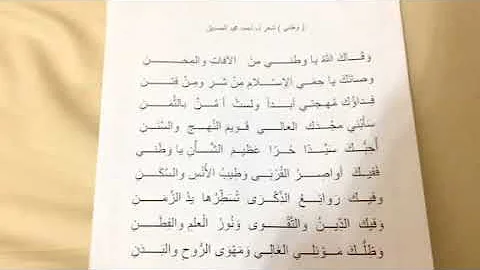 ( وطني ) شعر أ.د أحمد محمد الصديق
وَقَـاكَ اللهُ يا وطنـــي مـن الآفاتِ والمِحـــن
وصانَكَ يا حِمَى الإسْـلامِ مِنْ شرٍ ومِنْ فتن
فِـداؤك مُهجتِي أبـداً ولستُ أ مُنُّ بالثّمنِ
سَأبْني مجْدَكَ العالـي قويمَ النّهجِ والسّننِ
أُحبُّـك سَيِّـدًا حُـرًا عظيـمَ الشَّــأنِ يا وطنـي
ففيـكَ أواصِـرُ القُرْبَـى وطيبُ الأُنْسِ والسَّكَنِ
وفيـك روائِـعُ الذِّكْـرَى تُسطِّرُها يدُ الزَّمنِ
وفيك الدّيـنُ والتَّقْـوى ونُورُ العلمِ والفِطَنِ
وظِلُّـك مَـوْئلي الغالِي ومَهْوَى الرُّوحِ والبَدَنِ